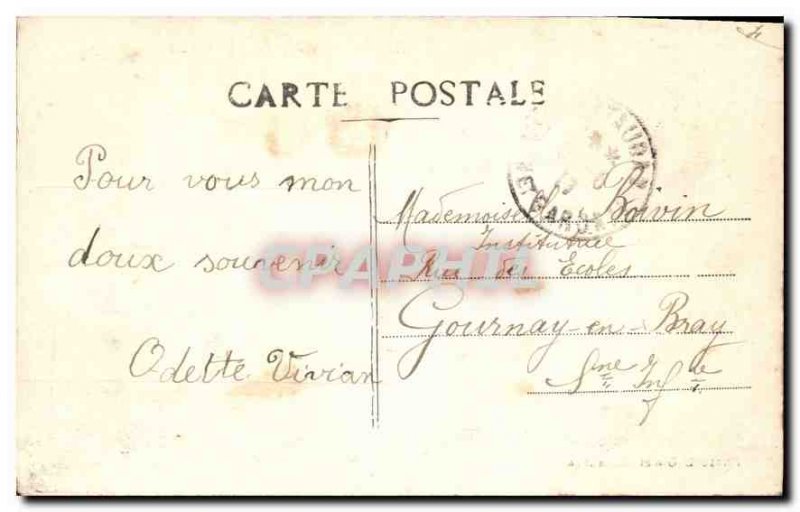 CARTE POSTALE
Pour vous mon
doux souvenir
Odette Vivian
Mademoiselle Boivin
Institutrice
Rue des Ecoles
Gournay-en-Bray
Sne Infre
CPAPHIL